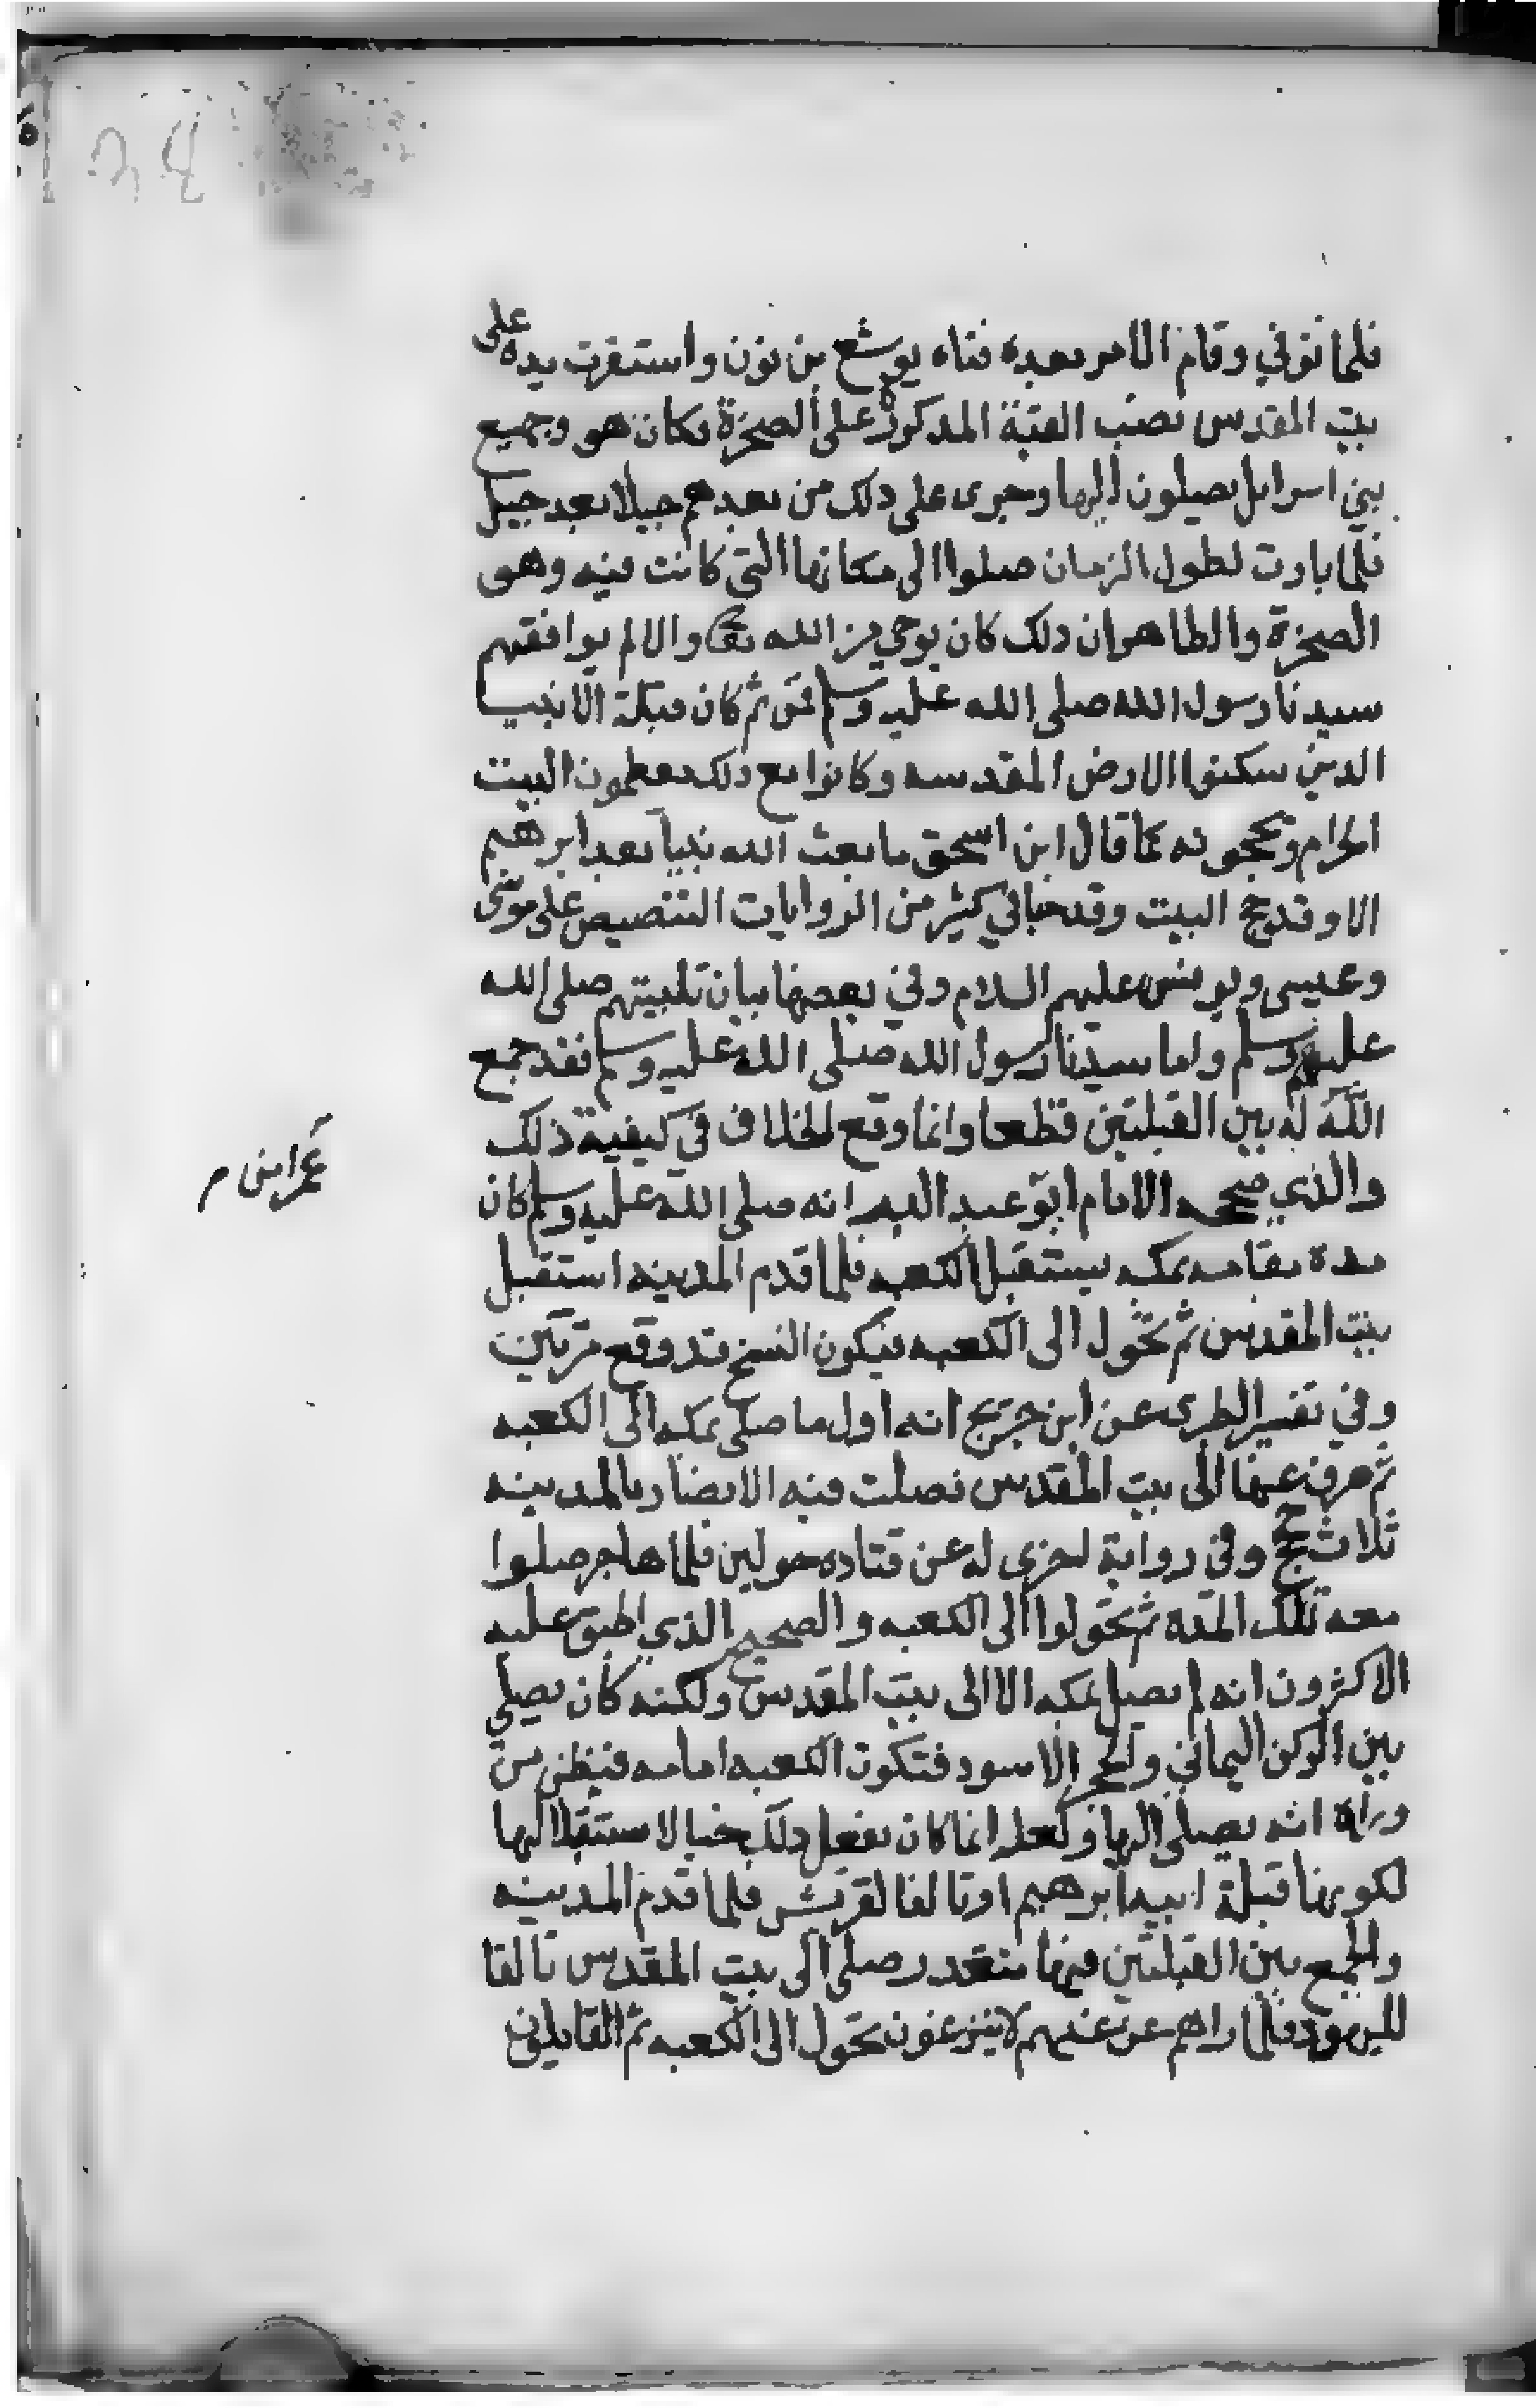 فلما توفي وقام الامر بعده فتاه يوشع بن نون واستقرت يده على
بيت المقدس نصب القبة المذكورة على الصخرة فكان هو وجميع
بني اسرايل يصلون اليها وجرى على ذلك من بعدهم جيلا بعد جيل
فلما بادت لطول الزمان صلوا الى مكانها التي كانت فيه وهو
الصخرة والظاهر ان ذلك كان بوحي من الله تعا والا لم يوافقهم
سيدنا رسول الله صلى الله عليه وسلم ثم كان قبلة الانبيا
الذين سكنوا الارض المقدسه وكانوا مع ذلك يعظمون البيت
الحرام ويحجونه كما قال ابن اسحق ما بعث الله نبيا بعد ابرهيم
الا وقد حج البيت وقد جا في كثير من الروايات التنصيص على موسى
وعيسى ويونس عليهم السلام وفي بعضها بيان تلبيتهم صلى الله
عليهم وسلم واما سيدنا رسول الله صلى الله عليه وسلم فقد جمع
الله له بين القبلتين قطعا وانما وقع الخلاف في كيفية ذلك
والذي صححه الامام ابو عبد البر انه صلى الله عليه وسلم كان
مدة مقامه بمكه يستقبل الكعبه فلما قدم المدينه استقبل
بيت المقدس ثم تحول الى الكعبه فيكون النسخ قد وقع مرتين
وفي تفسير الطبري عن ابن جريج انه اول ما صلى بمكه الى الكعبه
ثم صرف عنها الى بيت المقدس فصلت فيه الانصار بالمدينه
ثلاث حجج وفي رواية اخرى له عن قتاده حولين فلما هاجر صلوا
معه تلك المدة ثم تحولوا الى الكعبه والصحيح الذي اطبق عليه
الاكثرون انه لم يصل بمكه الا الى بيت المقدس ولكنه كان يصلي
بين الركن اليماني والحجر الاسود فتكون الكعبه امامه فيظن من
وراه انه يصلي اليها ولعله انما كان يفعل ذلك حبا لاستقبالها
لكونها قبلة ابيه ابرهيم او تالفا لقريش فلما قدم المدينه
والجمع بين القبلتين فيها متعذر صلى الى بيت المقدس تالفا
لليهود فلما راهم عن عنهم لا ينزعون تحول الى الكعبه ثم القايلون